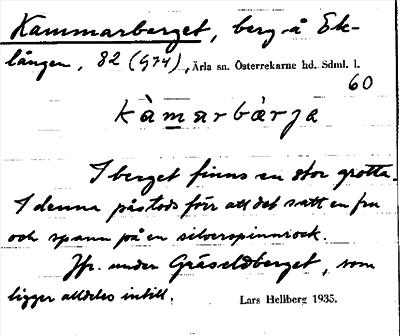 Kammarberget, berg å Ek-
lången, 82 (G74), Ärla sn. Österrekarne hd. Sdml. l.
60
kàmarbàrja
I berget finns en stor grotta.
I denna påstods förr att det satt en fru
och spann på en silverspinnrock.
Jfr. under Gräseldberget, som
ligger alldeles intill.
Lars Hellberg 1935.